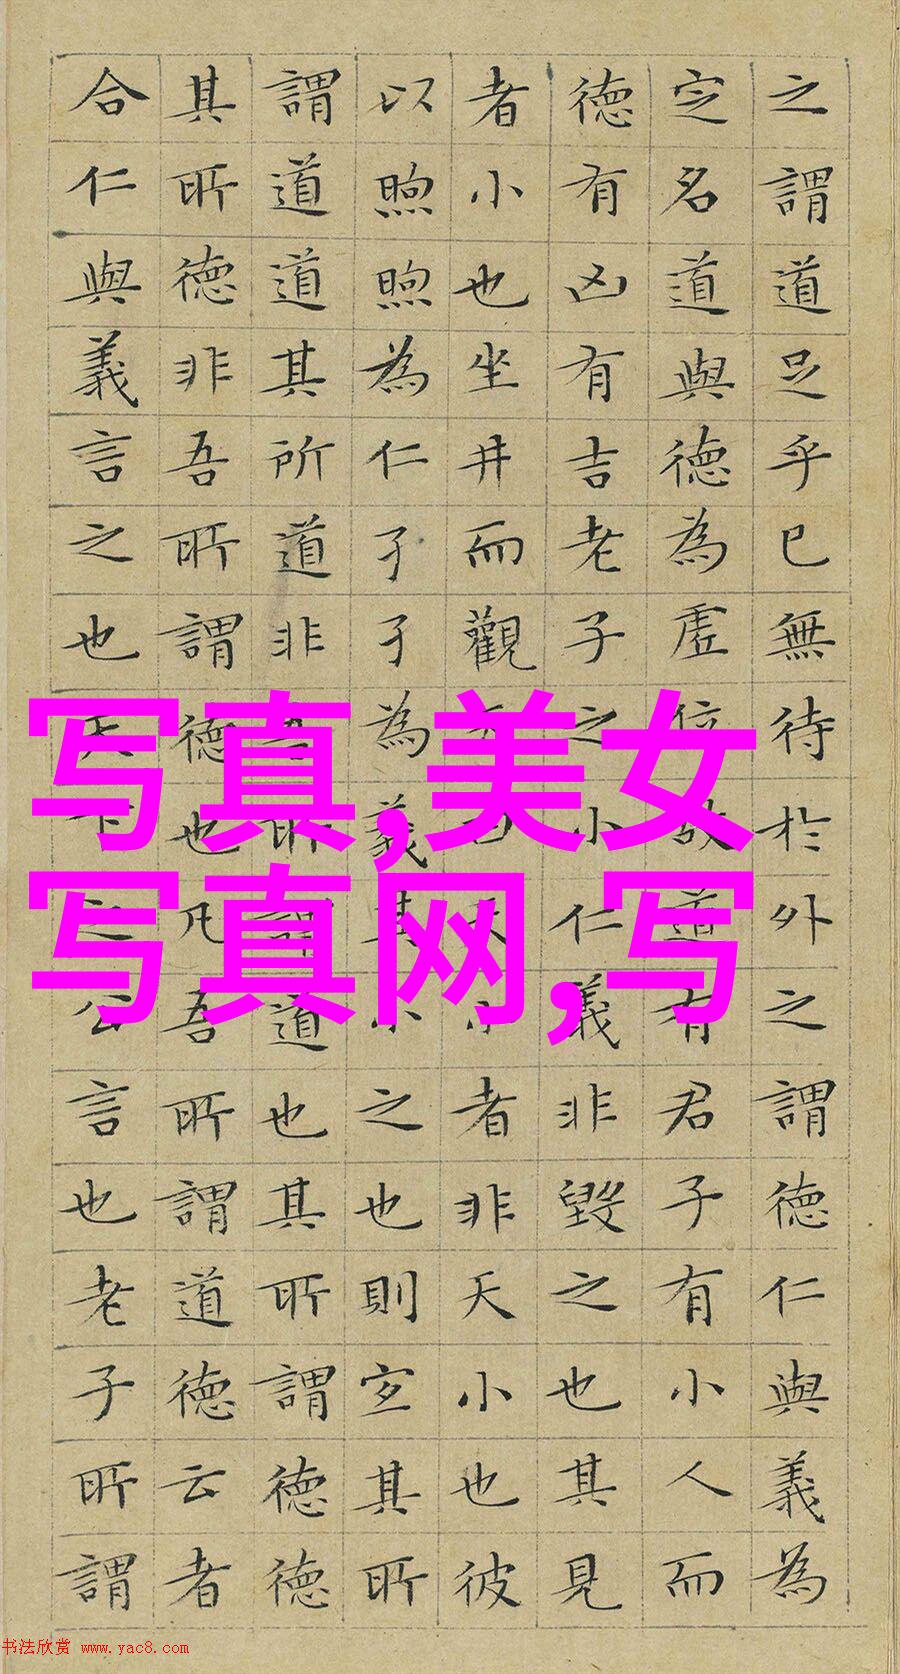 之謂道足乎已無待於外之謂德仁與義為
定名道與德為虛位故道有君子有小人而
德有凶有吉老子之小仁義非毀之也其見
者小也坐井而觀天曰天小者非天小也彼
以煦煦為仁孑孑為義其小之也則宜其所
謂道道其所道非吾所謂道也其所謂德德
其所德非吾所謂德也凡吾所謂道德云者
合仁與義言之也天下之公言也老子所謂
写真,美女
写真网,写
书法欣赏 www.yac8.com